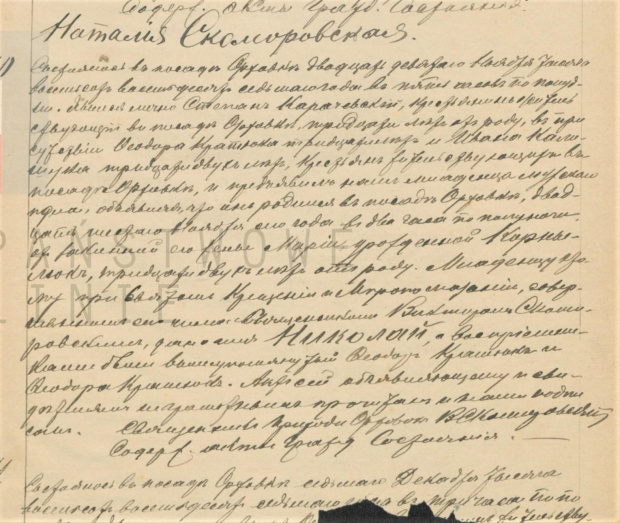 Содерж. Акты Гражд. Состояния.
Наталія Скоморовская.
Состоялось въ посадѣ Орховкѣ двадцать девятаго Ноября тысяча
восемьсотъ восемьдесятъ седьмаго года въ пять часовъ по полуд-
ни. Явился лично Степанъ крестьянинъ житель-
ствующій въ посадѣ Орховкѣ, тридцати лѣтъ отъ роду, въ при
сутствіи Ѳеодора тридцати лѣтъ и Ивана Кали-
тридцати двухъ лѣтъ, крестьянъ жительствующихъ въ
посадѣ Орховкѣ, и предъявилъ намъ младенца мужскаго
пола, объявляя, что онъ родился въ посадѣ Орховкѣ, двад-
цать Ноября сего года въ два часа по полуночи,
отъ законной его жены Маріи урожденной Корнѣ-
люкъ, тридцати двухъ лѣтъ отъ роду. Младенцу се-
му при Святомъ Крещеніи и Мѵропомазаніи, совер-
шенномъ сего числа Священникомъ Викторомъ Скомо-
ровскимъ, дано имя Николай, а воспріемни-
ками были вышеупомянутый Ѳеодоръ и
Ѳеодора. Актъ сей объявляющему и сви-
дѣтелямъ неграмотнымъ прочитанъ и нами подпи
санъ. Священникъ прихода Орховок ВСкоморовскій
Содерж. акты Гражд Состоянія.
Состоялось въ посадѣ Орховкѣ седьмаго Декабря тысяча
восемьсотъ восемьдесятъ седьмаго года въ три часа по по